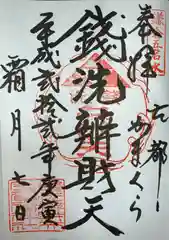 奉拝
古都
かまくら
銭洗辨財天
平成弐拾弐年庚寅
霜月
七日